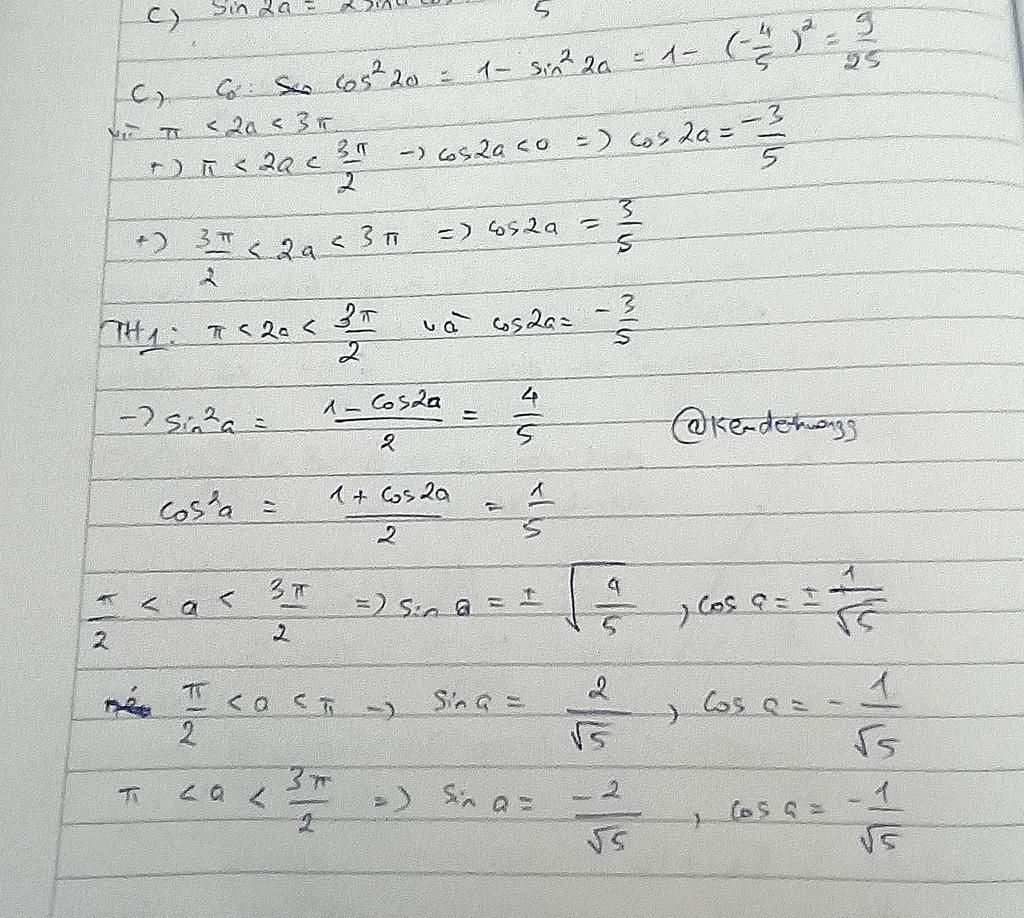 c) Sin 2a = 2 sina 5
c) Có: cos² 2a = 1 - sin² 2a = 1 - (-4/5)² = 9/25
vì π < 2a < 3π
+) π < 2a < 3π/2 -> cos2a < 0 => cos 2a = -3/5
+) 3π/2 < 2a < 3π => cos2a = 3/5
TH1: π < 2a < 3π/2 và cos2a = -3/5
-> sin²a = (1 - cos2a)/2 = 4/5 @Kendethwongg
cos²a = (1 + cos2a)/2 = 1/5
π/2 < a < 3π/2 => sin a = ± √(4/5), cos a = ± 1/√5
π/2 < a < π -> sin a = 2/√5, cos a = -1/√5
π < a < 3π/2 => sin a = -2/√5, cos a = -1/√5